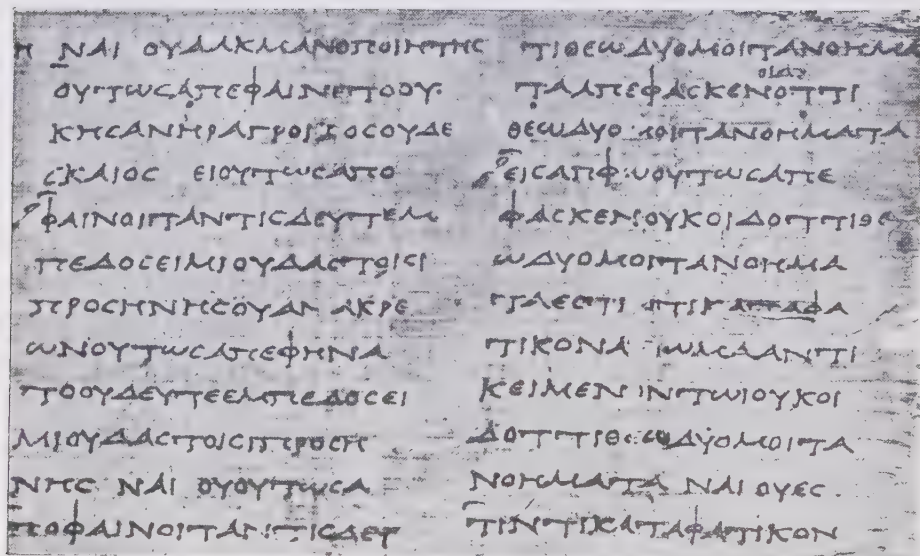 Η ΝΑΙ ΟΥΑΛΚΜΑΝΟΠΟΙΗΤΗC
ΟΥΤΩCΑΠΕΦΑΙΝΕΤΟΟΥ
ΚΗCΑΝΗΡΑΓΡΟΙΚΟCΟΥΔΕ
CΚΑΙΟC ΕΙΟΥΤΩCΑΠΟ
ΦΑΙΝΟΙΤΑΝΤΙCΔΕΥΤΕΜ
ΠΕΔΟCΕΙΜΙΟΥΔΑCΤΟΙCΙ
ΠΡΟCΗΝΗCΟΥΑΝ ΑΚΡΕ
ΩΝΟΥΤΩCΑΠΕΦΗΝΑ
ΤΟΟΥΔΕΥΤΕΕΜΠΕΔΟCΕΙ
ΜΙΟΥΔΑCΤΟΙCΠΡΟCΗ
ΝΗC ΝΑΙ ΟΥΟΥΤΩCΑ
ΠΟΦΑΙΝΟΙΤΑΝΤΙCΔΕΥ
ΤΙΘΕΩΔΥΟΜΟΙΤΑΝΟΗΜΑ
ΤΑΑΠΕΦΑCΚΕΝΟΤΤΙ
ΘΕΩΔΥΟ ΜΟΙΤΑΝΟΗΜΑΤΑ
ΟΥΤΩCΑΠΕ
ΦΑCΚΕΝΟΥΚΟΙΔΟΤΤΙΘΕ
ΩΔΥΟΜΟΙΤΑΝΟΗΜΑ
ΤΑΕCΤΙ ΝΤΙΚΑΤΑΦΑ
ΤΙΚΟΝΑ ΙΩΜΑΑΝΤΙ
ΚΕΙΜΕΝ ΝΤΩΙΟΥΚΟΙ
ΔΟΤΤΙΘΕΩΔΥΟΜΟΙΤΑ
ΝΟΗΜΑΤΑ ΝΑΙ ΟΥΕC
ΤΙΝΤΙΚΑΤΑΦΑΤΙΚΟΝ